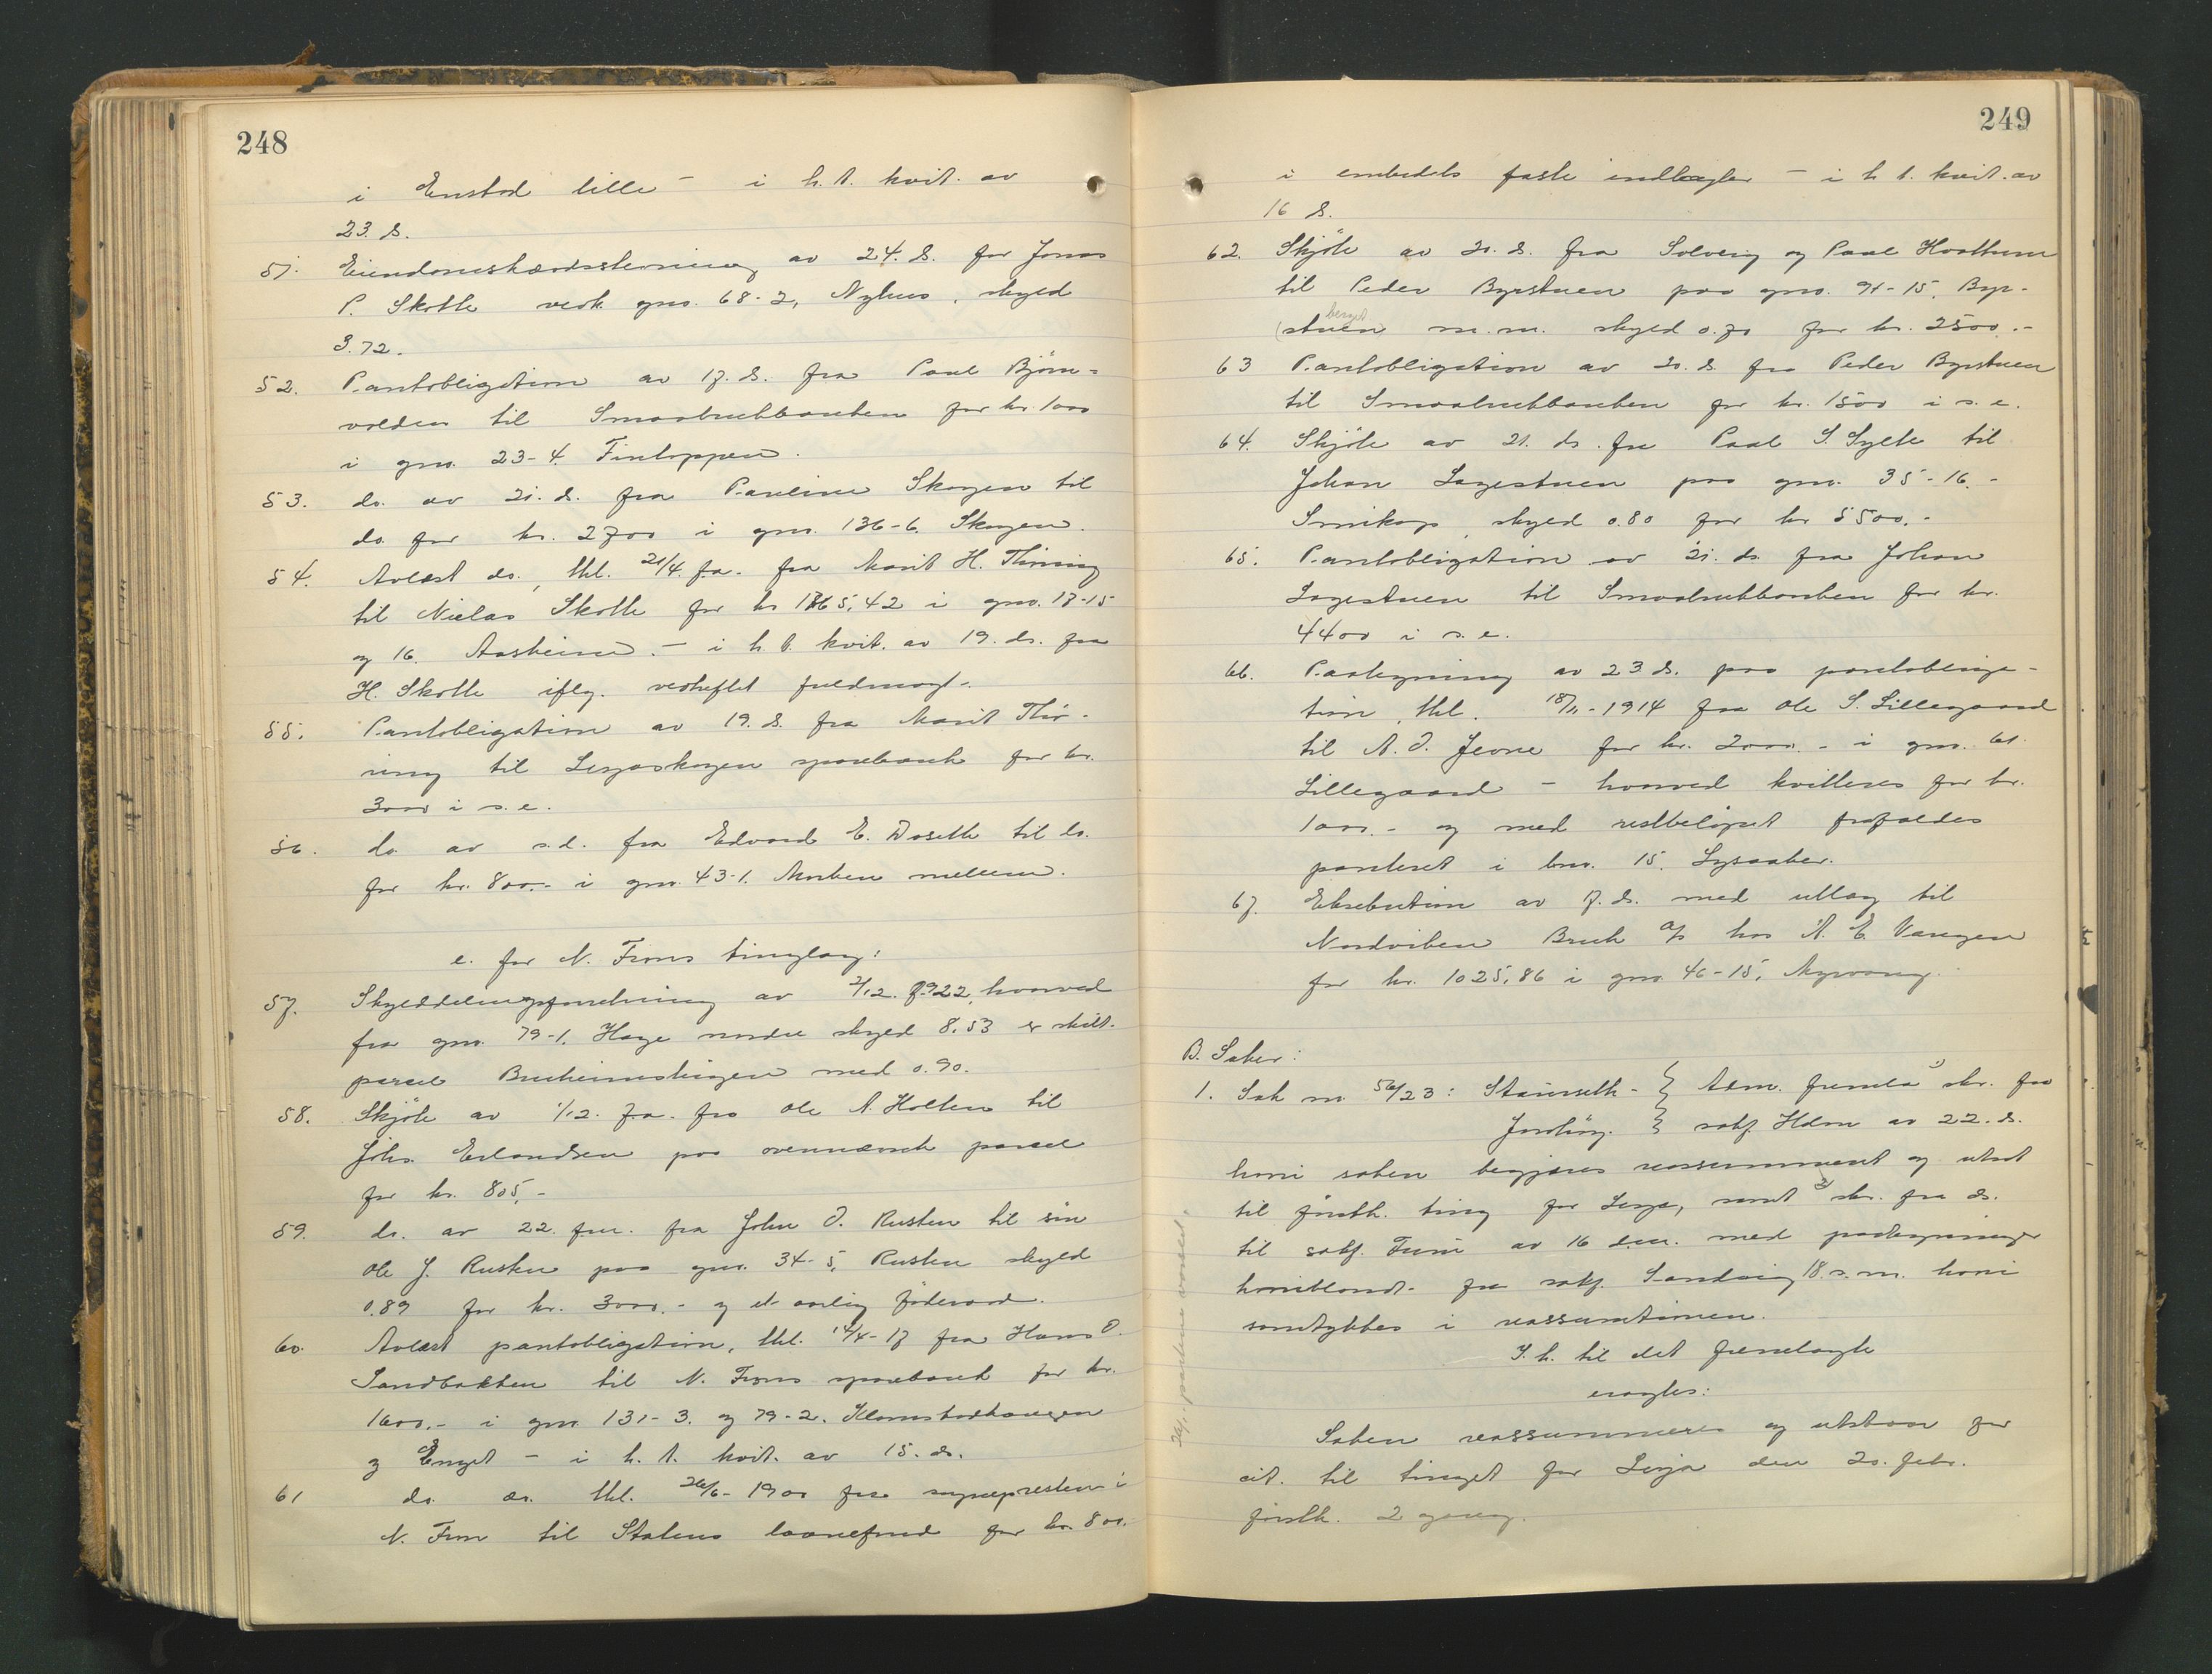 248
i Enstad lille – i h. t. kvit. av
23. ds.
51. Eiendomshævdsstevning av 24. ds. for Jonas
P. Skotte vedk. gno. 68-2, Nyhus, skyld
3.72.
52. Pantobligation av 17. ds. fra Paul Björn-
volden til Smaabrukbanken for kr. 1000
i gno. 23-4. Fintoppen.
53. do. av 21. ds. fra Pauline Skogen til
do. for kr. 2700 i gno. 136-6. Skogen.
54. Avlæst do., thl. 21/4. f.a. fra Marit H. Thöring
til Nielas Skotte for kr 1865,42 i gno. 17-15
og 16. Aasheim. – i h. t. kvit. av 19. ds. fra
H. Skotte iflg. vedheftet fuldmagt.
55. Pantobligation av 19. ds. fra Marit Thö-
ring til Lesjaskogen sparebank for kr.
3000 i s. e.
56. do. av s.d. fra Edvard E. Doseth til do.
for kr. 800.- i gno. 43-1. Morken mellem.
e. for N. Frons tinglag:
57. Skylddelingsforretning av 2/12. 1922, hvorved
fra gno. 79-1. Hage nordre skyld 8.53 er skilt.
parcel Bruheimshögen med 0.90.
58. Skjöte av 1/12. f.a. fra Ole A. Holten til
Johs. Erlandsen paa ovennævnte parcel
for kr. 805,-
59. do. av 22. f.m. fra John O. Rusten til sön
Ole J. Rusten paa gno. 34-5, Rusten skyld
0.89 for kr. 3000.- og et aarlig föderaad.
60. Avlæst pantobligation, thl. 14/4-17 fra Hans O.
Sandbakken til N. Frons sparebank for kr.
1600.- i gno. 131-3. og 79-2. Klomstadhaugen
og Enget – i h. t. kvit. av 15. ds.
61 do. do. thl. 26/6-1900 fra sognepresten i
N. Fron til Statens laanefond for kr. 800.
249
i embedets faste indtægter – i h t. kvit. av
16 ds.
62. Skjöte av 20. ds. fra Solveig og Paul Hvattum
til Peder Byrstuen paa gno. 94-15. Byr-
berget
(stuen) m.m. skyld 0.70 for kr. 2500.-
63 Pantobligation av 20. ds. fra Peder Byrstuen
til Smaabrukbanken for kr. 1500 i s. e.
64. Skjöte av 21. ds. fra Paul S. Sylte til
Johan Lagestuen paa gno. 35-16.-
skyld 0.80 for kr 5500.-
65. Pantobligation av 21. ds. fra Johan
Lagestuen til Smaabrukbanken for kr.
4400 i s. e.
66. Paategning av 23 ds. paa pantobliga-
tion, thl. 18/11-1914 fra Ole S. Lillegaard
til A. O. Jevne for kr. 2000.- i gno. 61
Lillegaard – hvorved kvitteres for kr.
1000.- og med restbelöpet frafaldes
panteret i bno. 15. Lysaaker.
67. Eksekution av 17. ds. med utlæg til
Nordviken Bruk A/S hos A. E. Vangen
for kr. 1025,86 i gno 46-15, Myrvang.
B. Saker:
1. Sak nr 56/23: Stavrseth - } Adm. fremla 1) skr. fra
Jordhöy. } sakf. Holm av 22. ds.
hvori saken begjæres reassummeret og utsat
til förstk. ting for Lesja, samt 2) skr. fra ds.
til sakf. av 16 dem. med paategninger
hvoriblandt fra sakf. Sandvig 18. s.m. hvori
samtykkes i reassumtionen.
I. h. til det fremlagte
eragtes:
Saken reassummeres og utstaar for
cit. til tinget for Lesja den 20. febr.
förstk. 2 gang.